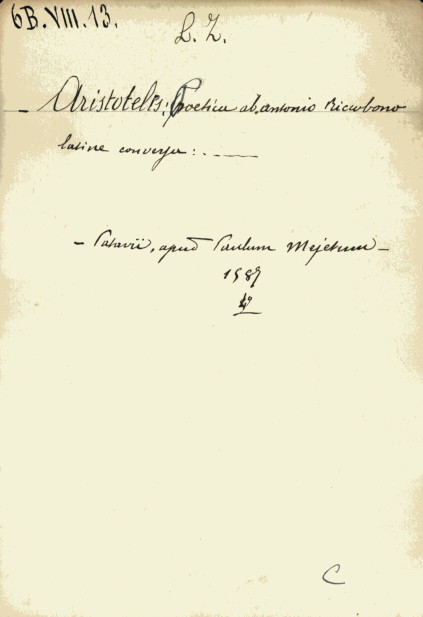 6B.VIII.13.
L. Z.
– Aristotelis: Poetica ab antonio Ricobono
latine conversa : . ——
– Patavii, apud Paulum Mejetum –
1587
4°
C